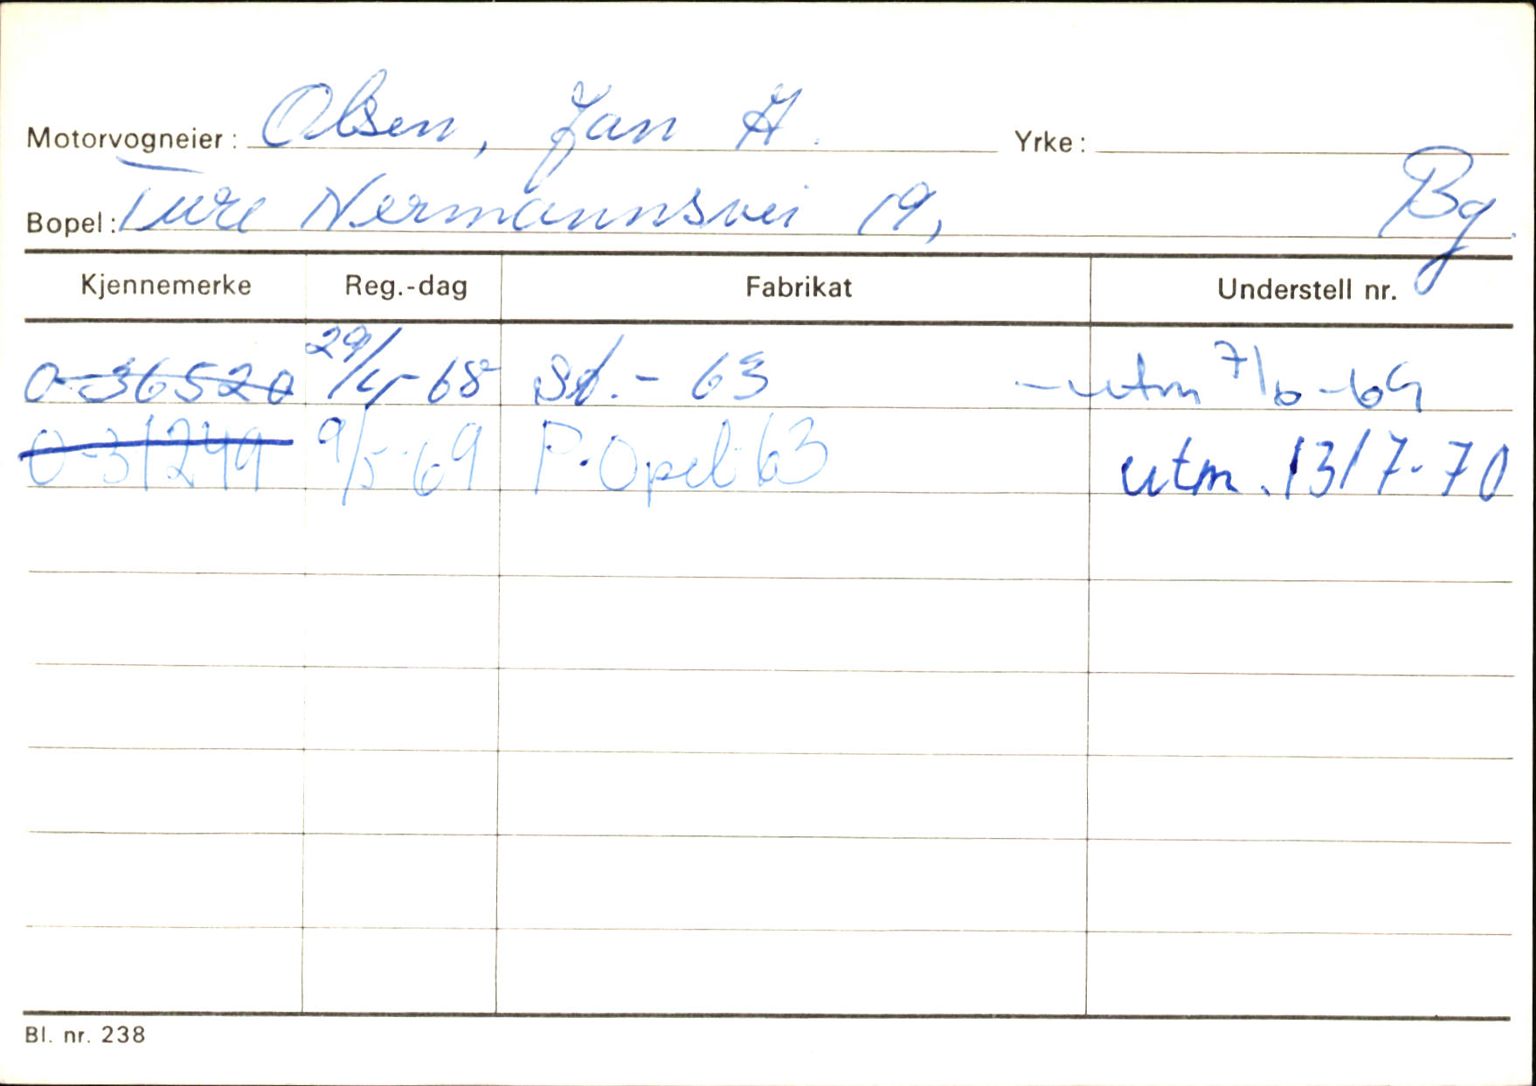 Motorvogneier: Olsen, Jan H. Yrke:
Bopel: Ture Nermannsvei 19, Bg.
Kjennemerke Reg.-dag Fabrikat Understell nr.
O-36520 29/4-68 St. - 63 - utm 7/6-69
O-31249 9/5-69 P. Opel 63 utm. 13/7-70
Bl. nr. 238